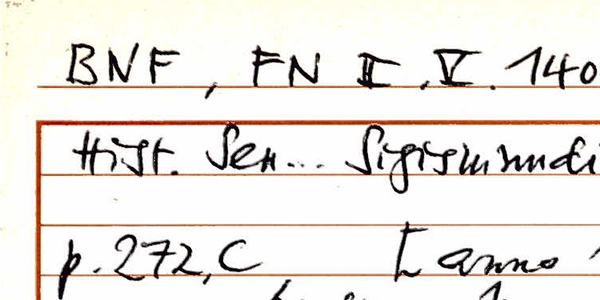 BNF, FN II.V.140
Hist. Sen... Sigismundi
p. 272, C anno